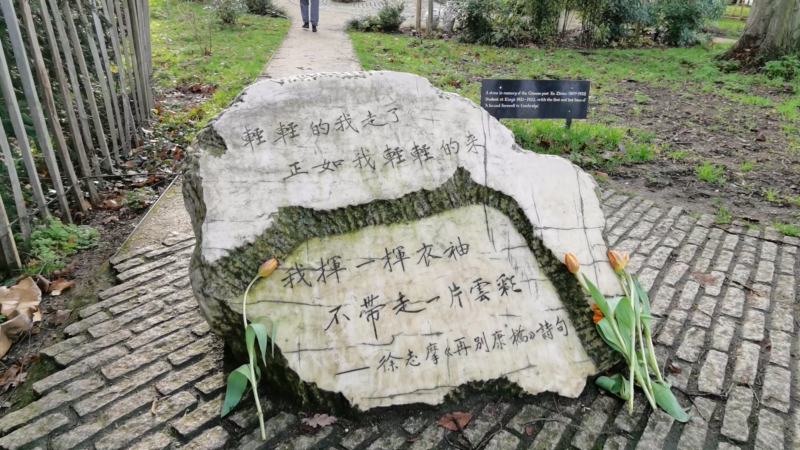 輕輕的我走了
正如我輕輕的來
我揮一揮衣袖
不帶走一片雲彩
——徐志摩《再別康橋》詩句
A stone in memory of the Chinese poet Xu Zhimo (1897-1931)
Student at King's 1921-1922, with the first and last lines of
his second farewell to Cambridge